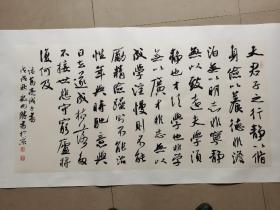 夫君子之行静以脩
身儉以養德非澹
泊無以明志非寧
静無以致遠夫學須
静也才須學也非學
無以廣才非志無以
成學淫慢則不能
勵精險躁則不能治
性年與時馳意與
日去遂成枯落多
不接世悲守窮廬將
復何及
諸葛亮誡子書
戊戌秋